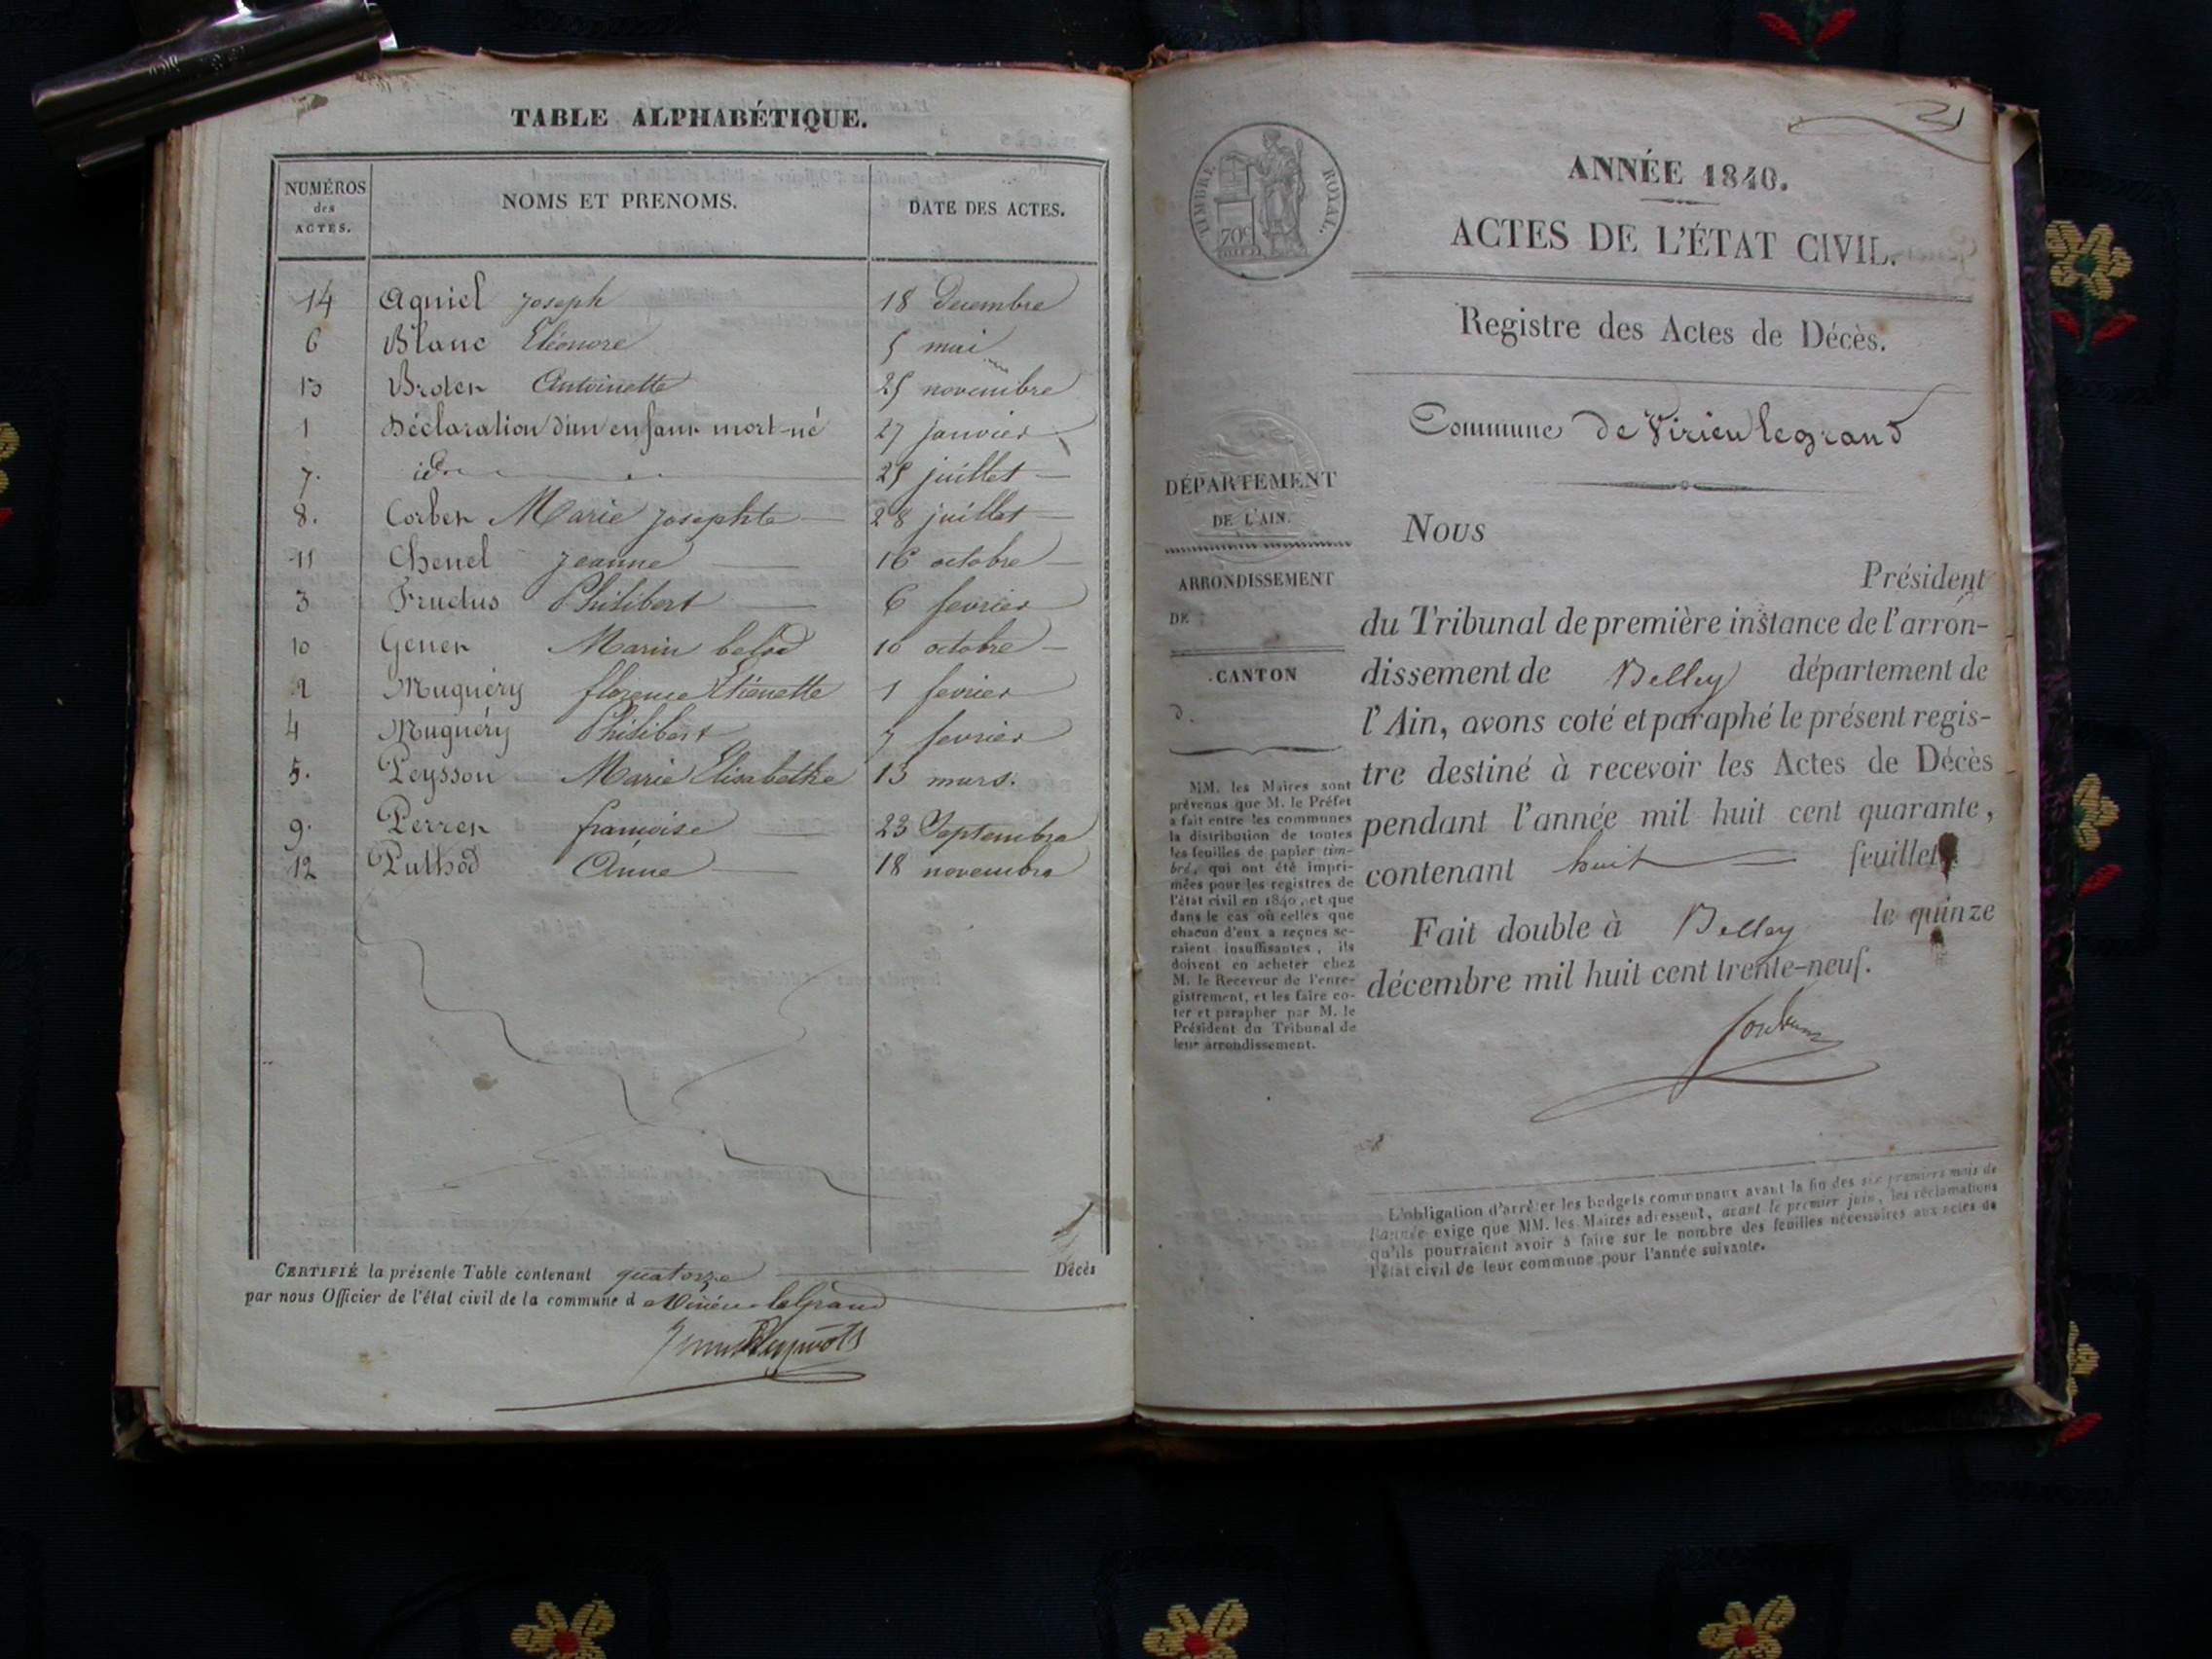 TABLE ALPHABÉTIQUE.
NUMÉROS
des
ACTES.
NOMS ET PRENOMS.
DATE DES ACTES.
14 Aguiel Joseph 18 Decembre
6 Blanc Eléonore 5 mai
13 Antoinette 25 novembre
1 Déclaration d'un enfant mort-né 27 janvier
7. id. 25 juillet
8. Corbet Marie Josephte 28 juillet
11 Chenel Jeanne 16 octobre
3 Fructus Philibert 6 fevrier
10 Genet Marin 10 octobre
2 Muguéry florence Etienette 1 fevrier
4 Muguéry Philibert 7 fevrier
5. Peysson Marie Elisabethe 13 mars.
9. Perret francoise 23 Septembre
12 Puthod Anne 18 novembre
CERTIFIÉ la présente Table contenant quatorze Décès
par nous Officier de l'état civil de la commune d Virieu le Grand
TIMBRE ROYAL.
70c
21
ANNÉE 1840.
ACTES DE L'ÉTAT CIVIL.
Registre des Actes de Décès.
Commune de Virieu legrand
DÉPARTEMENT
DE L'AIN.
ARRONDISSEMENT
DE
CANTON
d.
MM. les Maires sont
prévenus que M. le Préfet
a fait entre les communes
la distribution de toutes
les feuilles de papier tim-
bré, qui ont été impri-
mées pour les registres de
l'état civil en 1840, et que
dans le cas où celles que
chacun d'eux a reçues se-
raient insuffisantes, ils
doivent en acheter chez
M. le Receveur de l'enre-
gistrement, et les faire co-
ter et parapher par M. le
Président du Tribunal de
leur arrondissement.
Nous
Président
du Tribunal de première instance de l'arron-
dissement de Belley département de
l'Ain, avons coté et paraphé le présent regis-
tre destiné à recevoir les Actes de Décès
pendant l'année mil huit cent quarante,
contenant huit feuillets
Fait double à Belley le quinze
décembre mil huit cent trente-neuf.
L'obligation d'arrêter les budgets communaux avant la fin des six premiers mois de
l'année exige que MM. les Maires adressent, avant le premier juin, les réclamations
qu'ils pourraient avoir à faire sur le nombre des feuilles nécessaires aux actes de
l'état civil de leur commune pour l'année suivante.